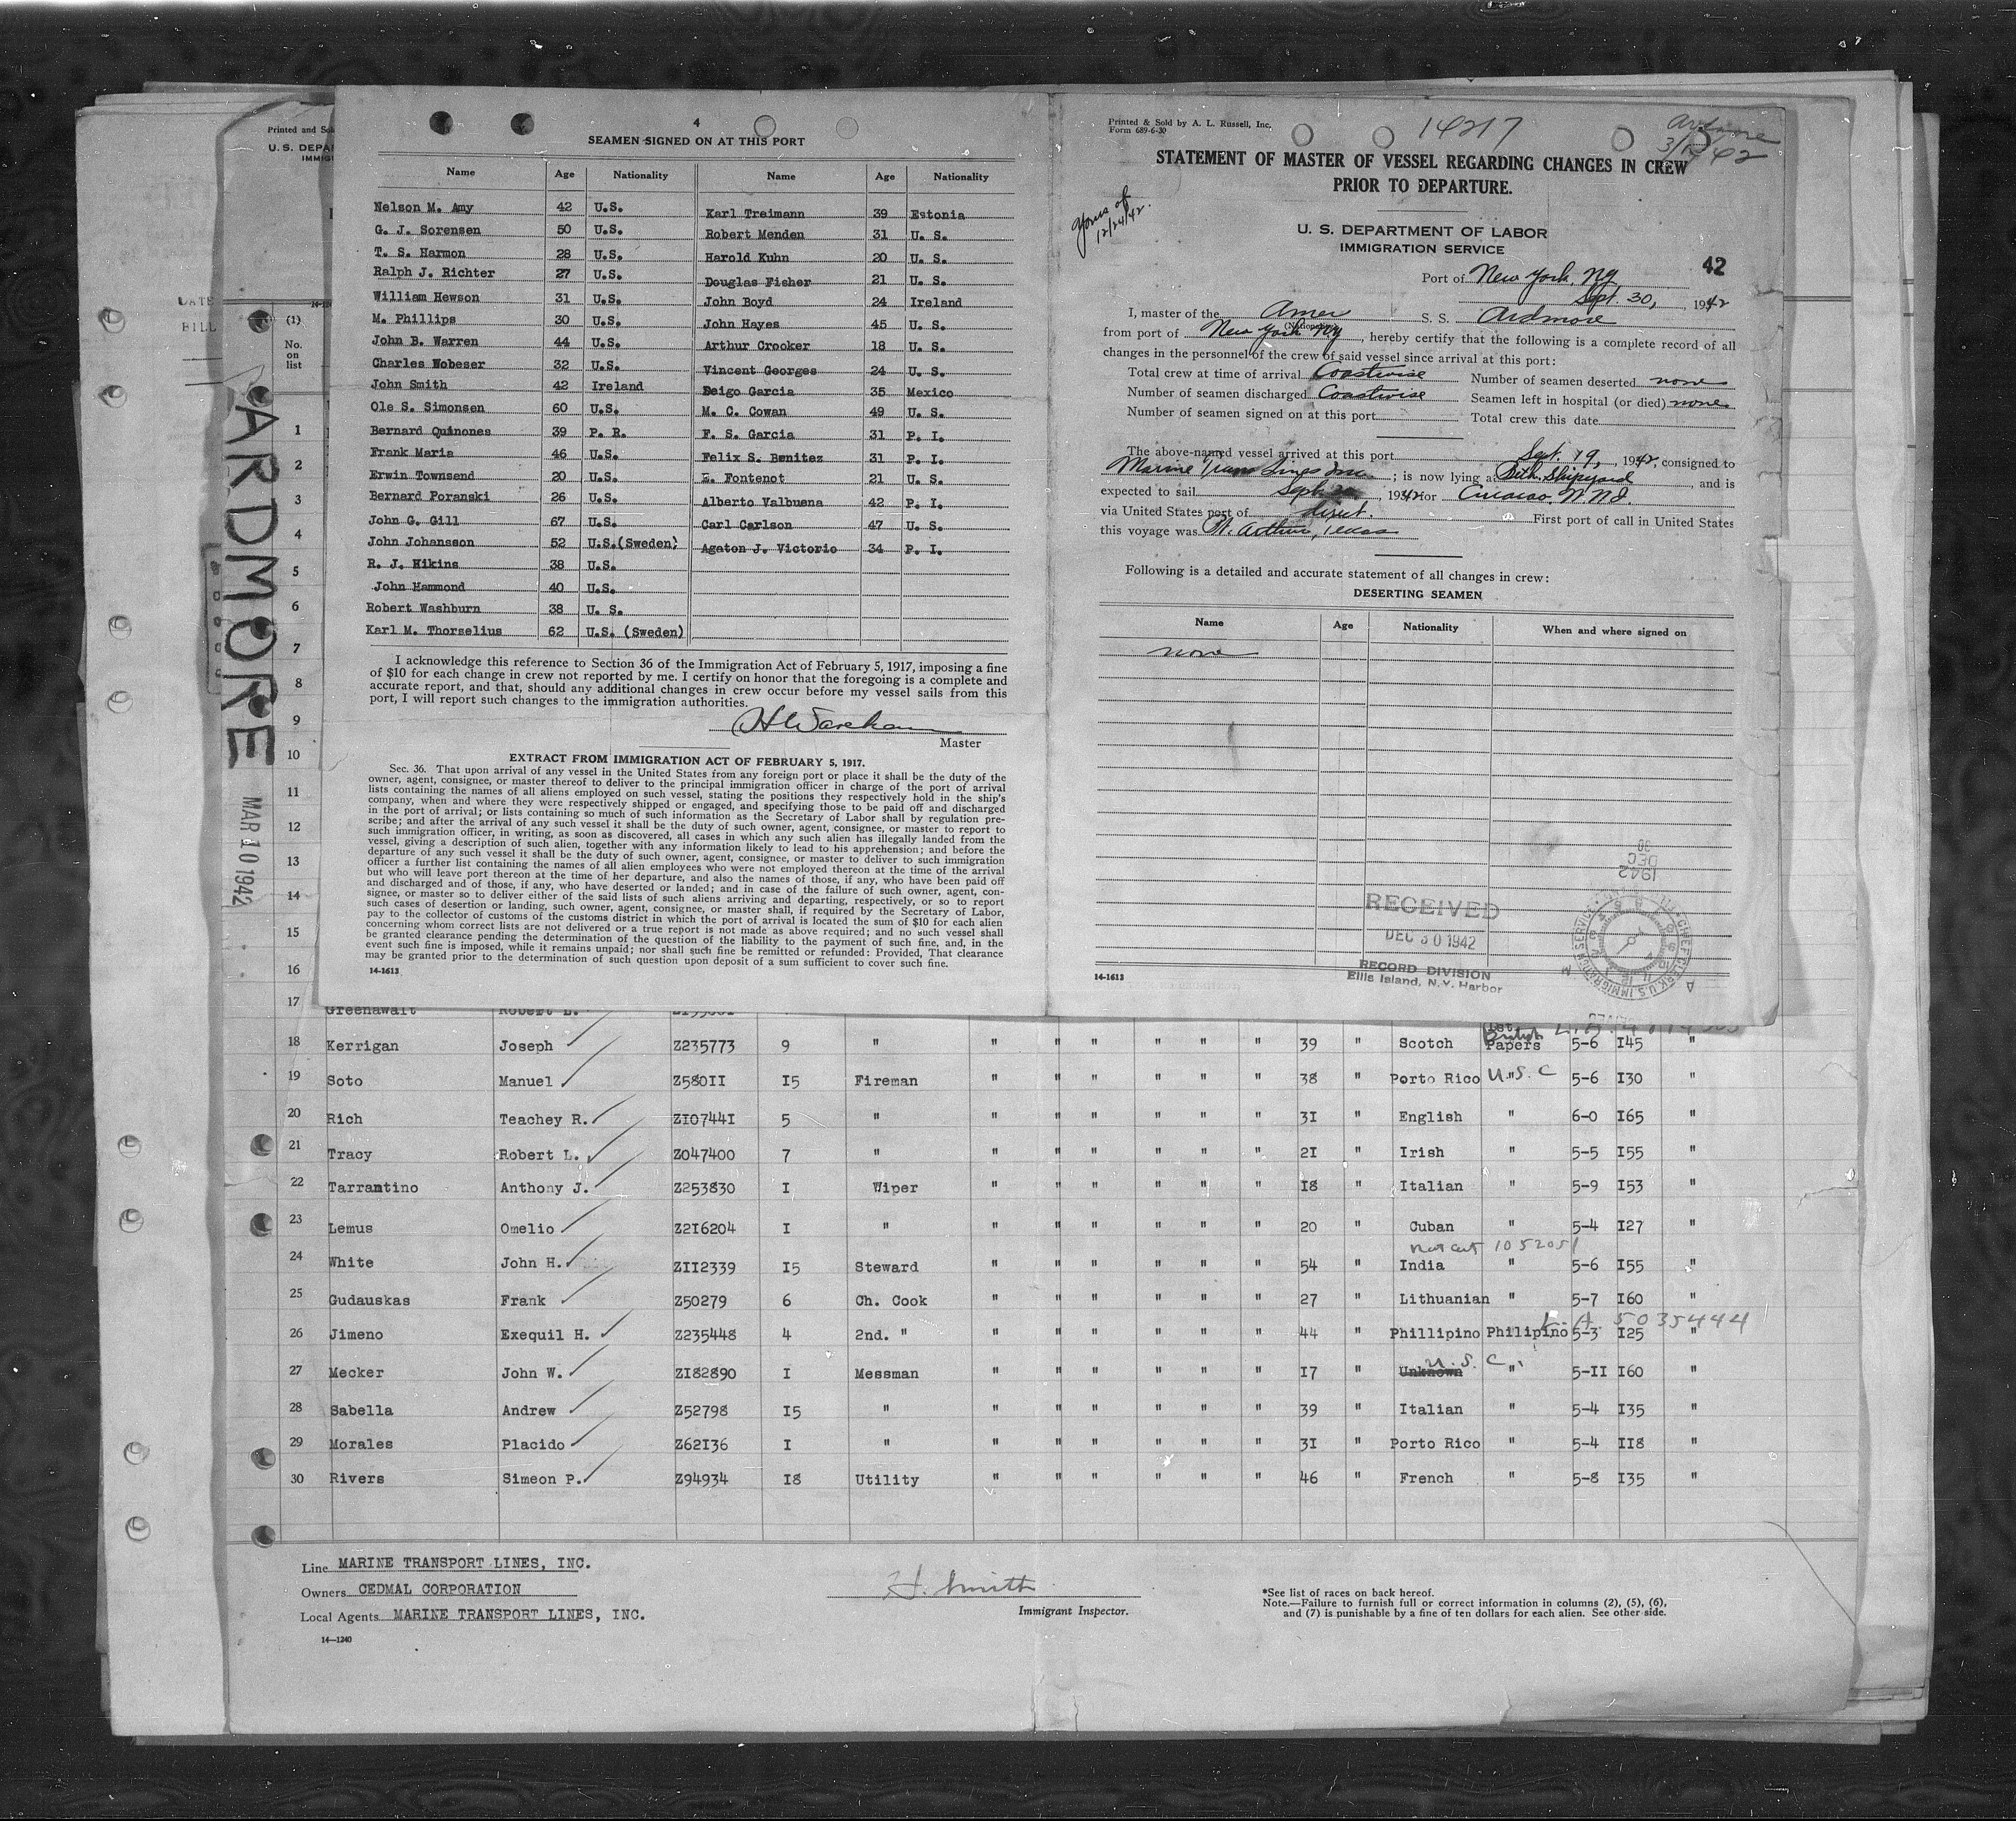 Printed and Sol
U. S. DEPA
IMMIG
4
SEAMEN SIGNED ON AT THIS PORT
Name Age Nationality Name Age Nationality
Nelson M. Amy 42 U.S. Karl Treimann 39 Estonia
G. J. Sorensen 50 U.S. Robert Menden 31 U. S.
T. S. Harmon 28 U.S. Harold Kuhn 20 U. S.
Ralph J. Richter 27 U.S. Douglas Fisher 21 U. S.
William Hewson 31 U.S. John Boyd 24 Ireland
M. Phillips 30 U.S. John Hayes 45 U. S.
John B. Warren 44 U.S. Arthur Crooker 18 U. S.
Charles Wobeser 32 U.S. Vincent Georges 24 U. S.
John Smith 42 Ireland Deigo Garcia 35 Mexico
Ole S. Simonsen 60 U.S. M. C. Cowan 49 U. S.
Bernard Quinones 39 P. R. F. S. Garcia 31 P. I.
Frank Maria 46 U.S. Felix S. Benitez 31 P. I.
Erwin Townsend 20 U.S. E. Fontenot 21 U. S.
Bernard Poranski 26 U.S. Alberto Valbuena 42 P. I.
John G. Gill 67 U.S. Carl Carlson 47 U. S.
John Johansson 52 U.S.(Sweden) Agaton J. Victorio 34 P. I.
R. J. Hikins 38 U.S.
John Hammond 40 U.S.
Robert Washburn 38 U. S.
Karl M. Thorselius 62 U.S. (Sweden)
I acknowledge this reference to Section 36 of the Immigration Act of February 5, 1917, imposing a fine
of $10 for each change in crew not reported by me. I certify on honor that the foregoing is a complete and
accurate report, and that, should any additional changes in crew occur before my vessel sails from this
port, I will report such changes to the immigration authorities.
Master
EXTRACT FROM IMMIGRATION ACT OF FEBRUARY 5, 1917.
Sec. 36. That upon arrival of any vessel in the United States from any foreign port or place it shall be the duty of the
owner, agent, consignee, or master thereof to deliver to the principal immigration officer in charge of the port of arrival
lists containing the names of all aliens employed on such vessel, stating the positions they respectively hold in the ship's
company, when and where they were respectively shipped or engaged, and specifying those to be paid off and discharged
in the port of arrival; or lists containing so much of such information as the Secretary of Labor shall by regulation pre-
scribe; and after the arrival of any such vessel it shall be the duty of such owner, agent, consignee, or master to report to
such immigration officer, in writing, as soon as discovered, all cases in which any such alien has illegally landed from the
vessel, giving a description of such alien, together with any information likely to lead to his apprehension; and before the
departure of any such vessel it shall be the duty of such owner, agent, consignee, or master to deliver to such immigration
officer a further list containing the names of all alien employees who were not employed thereon at the time of the arrival
but who will leave port thereon at the time of her departure, and also the names of those, if any, who have been paid off
and discharged and of those, if any, who have deserted or landed; and in case of the failure of such owner, agent, con-
signee, or master so to deliver either of the said lists of such aliens arriving and departing, respectively, or so to report
such cases of desertion or landing, such owner, agent, consignee, or master shall, if required by the Secretary of Labor,
pay to the collector of customs of the customs district in which the port of arrival is located the sum of $10 for each alien
concerning whom correct lists are not delivered or a true report is not made as above required; and no such vessel shall
be granted clearance pending the determination of the question of the liability to the payment of such fine, and, in the
event such fine is imposed, while it remains unpaid; nor shall such fine be remitted or refunded: Provided, That clearance
may be granted prior to the determination of such question upon deposit of a sum sufficient to cover such fine.
14-1613
Printed & Sold by A. L. Russell, Inc.
Form 689-6-30
14217
Ardmore
STATEMENT OF MASTER OF VESSEL REGARDING CHANGES IN CREW
PRIOR TO DEPARTURE.
Yours of
12/24/42.
U. S. DEPARTMENT OF LABOR
IMMIGRATION SERVICE
42
Port of New York, NY
Sept. 30, 1942
I, master of the Amer S. S. Ardmore
(Nationality)
from port of New York NY, hereby certify that the following is a complete record of all
changes in the personnel of the crew of said vessel since arrival at this port:
Total crew at time of arrival Coastwise Number of seamen deserted none
Number of seamen discharged Coastwise Seamen left in hospital (or died) none
Number of seamen signed on at this port Total crew this date
The above-named vessel arrived at this port Sept. 19, 1942, consigned to
Marine Trans Lines Inc ; is now lying at Beth. Shipyard, and is
expected to sail Sept , 1942 for Curacao, N.W.I.
via United States port of direct. First port of call in United States
this voyage was Pt. Arthur, Texas
Following is a detailed and accurate statement of all changes in crew:
DESERTING SEAMEN
Name Age Nationality When and where signed on
none
1942
DEC
30
RECEIVED
DEC 30 1942
RECORD DIVISION
Ellis Island, N.Y. Harbor
CHIEF CLERK U.S. IMMIGRATION SERVICE
14-1613
DATE
BILL
ARDMORE
MAR 10 1942
(1)
No.
on
list
1
2
3
4
5
6
7
8
9
10
11
12
13
14
15
16
17 Greenawalt Robert L.
18 Kerrigan Joseph Z235773 9 " " " " " " " 39 " Scotch 1st British Papers 5-6 I45 "
19 Soto Manuel Z580II I5 Fireman " " " " " " 38 " Porto Rico U.S.C " 5-6 I30 "
20 Rich Teachey R. ZI0744I 5 " " " " " " " 3I " English " 6-0 I65 "
21 Tracy Robert L. Z047400 7 " " " " " " " 2I " Irish " 5-5 I55 "
22 Tarrantino Anthony J. Z253830 I Wiper " " " " " " I8 " Italian " 5-9 I53 "
23 Lemus Omelio Z2I6204 I " " " " " " " 20 " Cuban " 5-4 I27 "
Nat Cert 1052051
24 White John H. ZII2339 I5 Steward " " " " " " 54 " India " 5-6 I55 "
25 Gudauskas Frank Z50279 6 Ch. Cook " " " " " " 27 " Lithuanian " 5-7 I60 "
26 Jimeno Exequil H. Z235448 4 2nd. " " " " " " " 44 " Phillipino Philipino 5-3 I25 "
5035444
27 Mecker John W. ZI82890 I Messman " " " " " " I7 " Unknown U.S.C " 5-II I60 "
28 Sabella Andrew Z52798 I5 " " " " " " " 39 " Italian " 5-4 I35 "
29 Morales Placido Z62I36 I " " " " " " " 3I " Porto Rico " 5-4 II8 "
30 Rivers Simeon P. Z94934 I8 Utility " " " " " " 46 " French " 5-8 I35 "
Line MARINE TRANSPORT LINES, INC.
Owners CEDMAL CORPORATION
Local Agents MARINE TRANSPORT LINES, INC.
14—1240
H. Smith
Immigrant Inspector.
*See list of races on back hereof.
Note.—Failure to furnish full or correct information in columns (2), (5), (6),
and (7) is punishable by a fine of ten dollars for each alien. See other side.